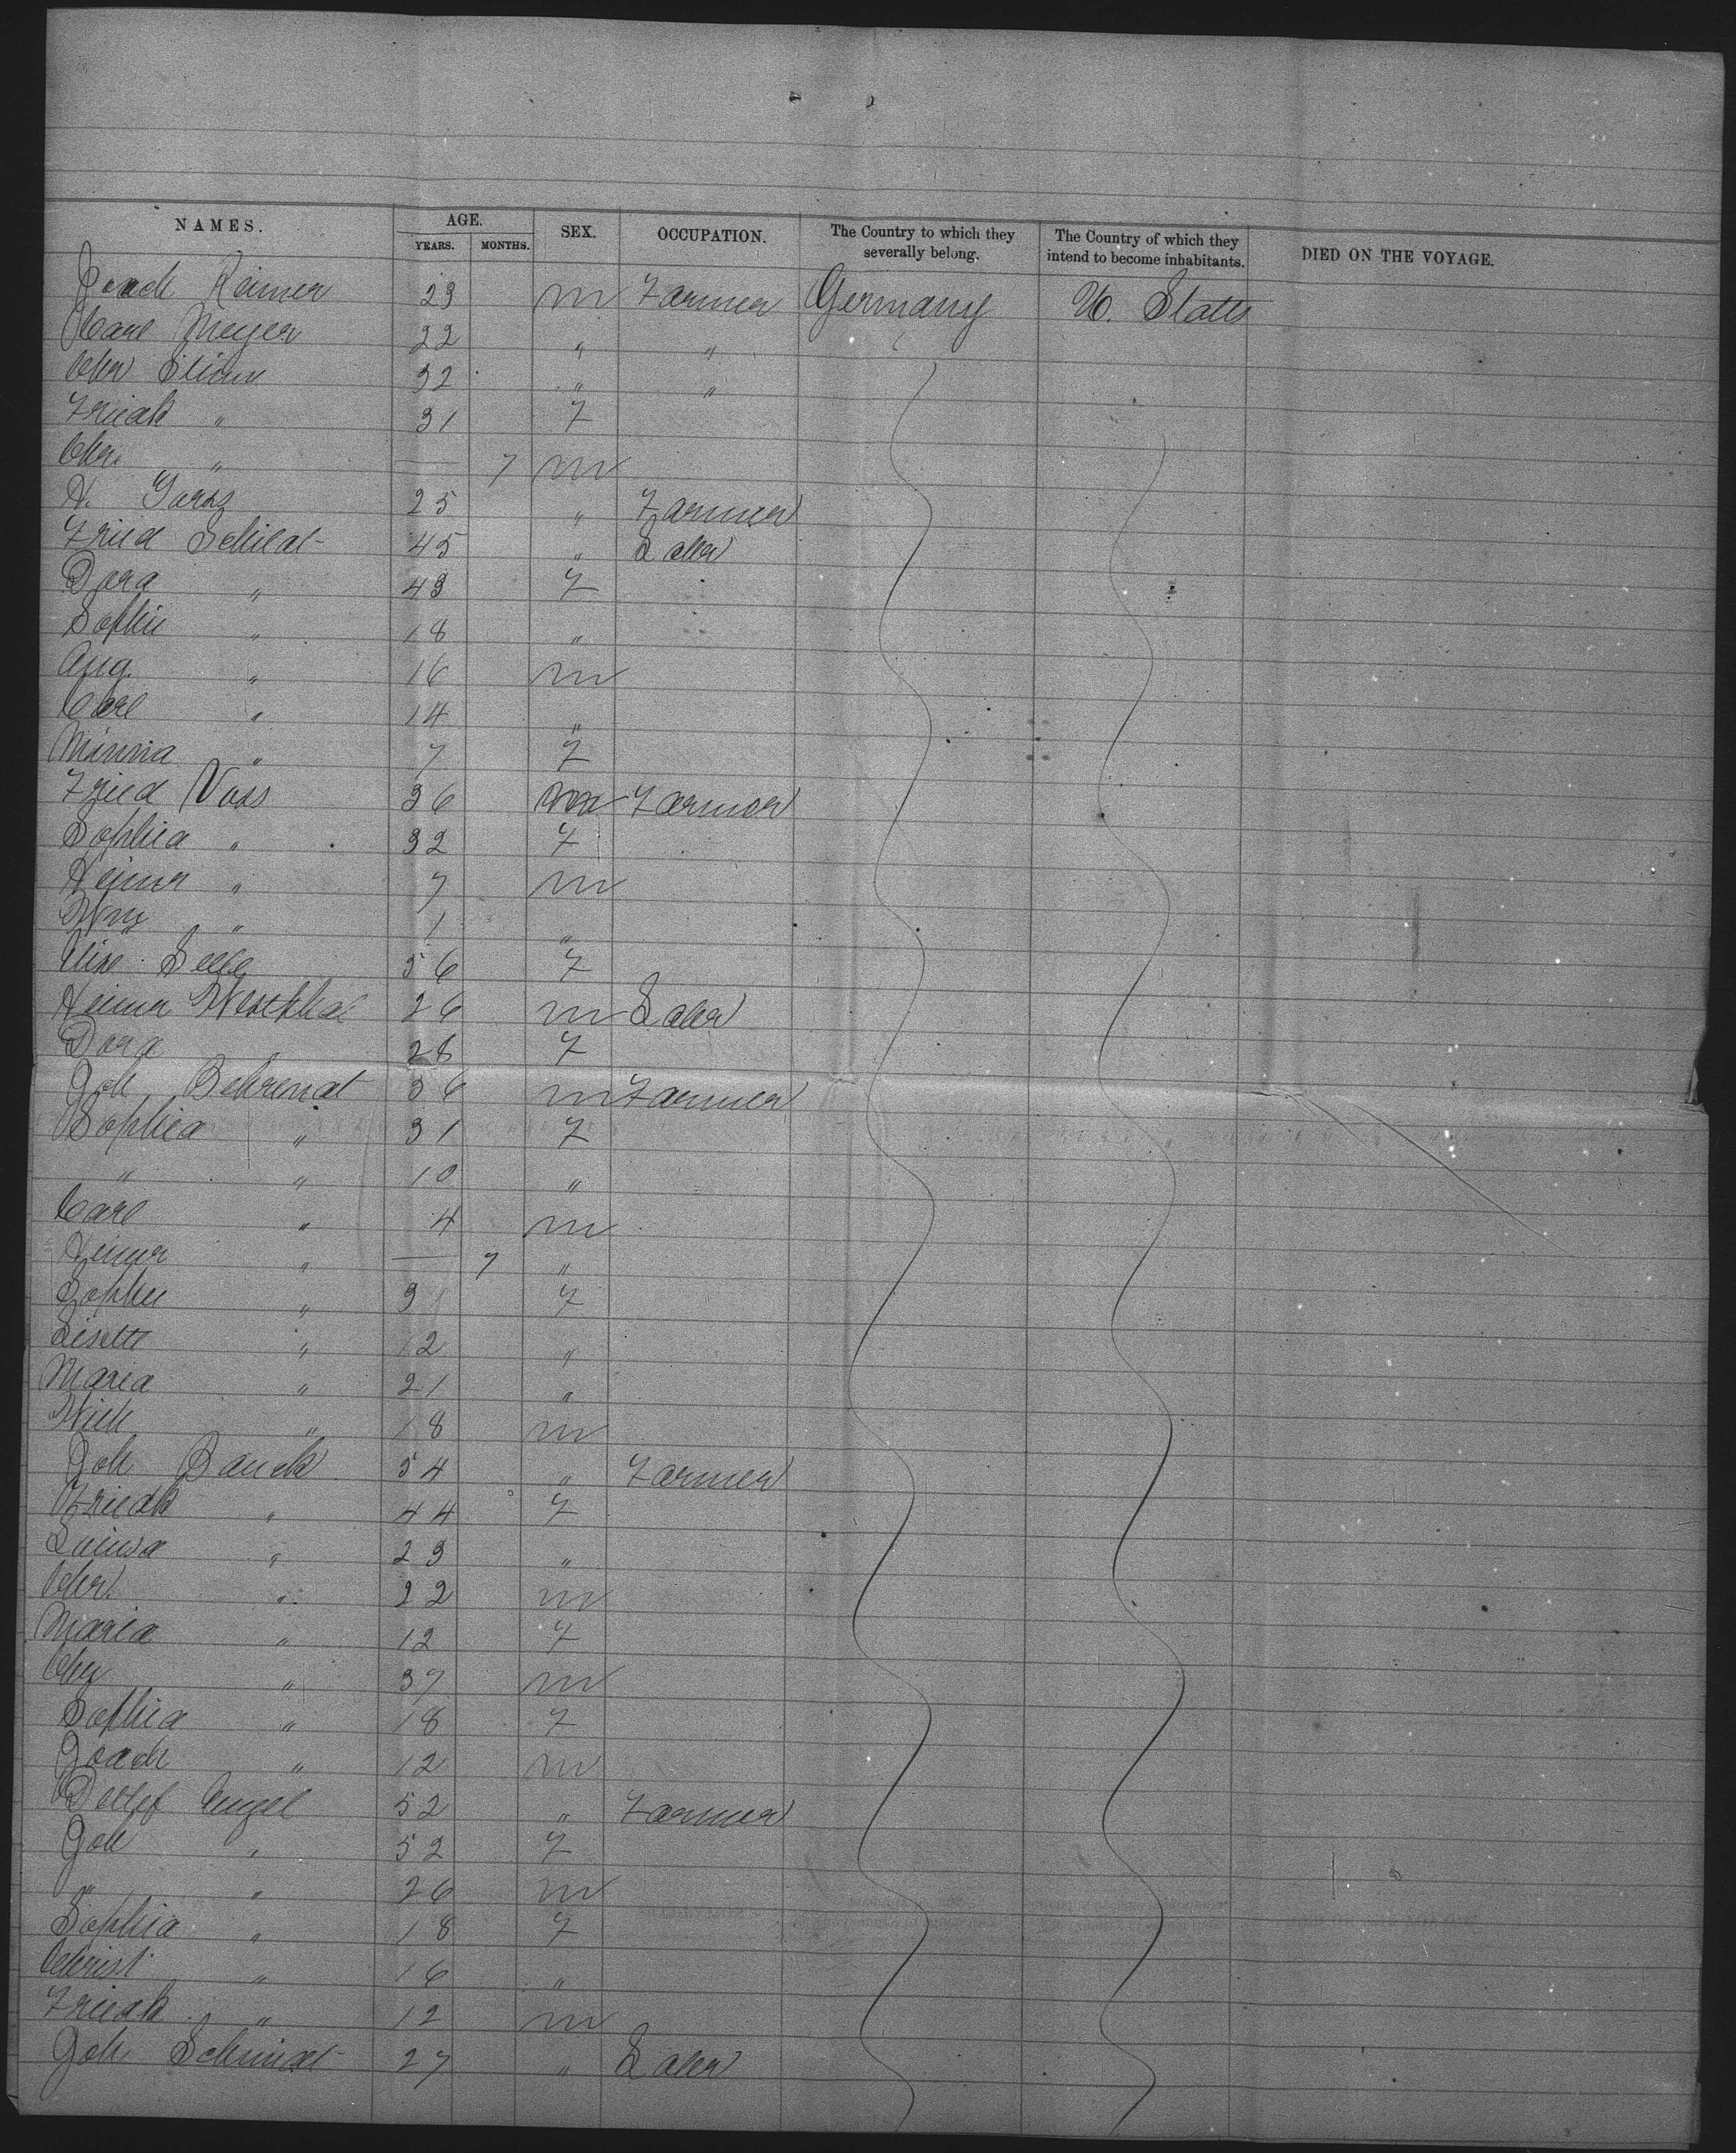 NAMES. AGE. SEX. OCCUPATION. The Country to which they severally belong. The Country of which they intend to become inhabitants. DIED ON THE VOYAGE.
YEARS. MONTHS.
Joach Reimer 23 m Farmer Germany U. States
Carl Meyer 22 " "
Chr 32 " "
Friedk " 31 F
Chr. " — 7 m
H. 25 " Farmer
Fried Schildt 45 " Labr
Dora " 43 F
Sophie " 18 "
Aug. " 16 m
Carl " 14 "
Minna " 7 F
Fried Voss 36 m Farmer
Sophia " 32 F
Heinr " 7 m
" 1 "
Elise 56 F
Heinr Westphal 26 m Labr
Dora 28 F
Joh Behrendt 36 m Farmer
Sophia " 31 F
" " 10 "
Carl " 4 m
Heinr " — 7 "
Sophie " 31 F
Lisette " 12 "
Maria " 21 "
Wilh " 18 m
Joh Banck 54 " Farmer
Friedk " 44 F
Louisa " 23 "
Chr. " 22 m
Maria " 12 F
" 37 m
Sophia " 18 F
Joach " 12 m
Detlef Engel 52 " Farmer
Joh " 52 F
" " 26 m
Sophia " 18 F
Christ " 16 "
Friedk " 12 m
Joh Schmidt 27 " Labr